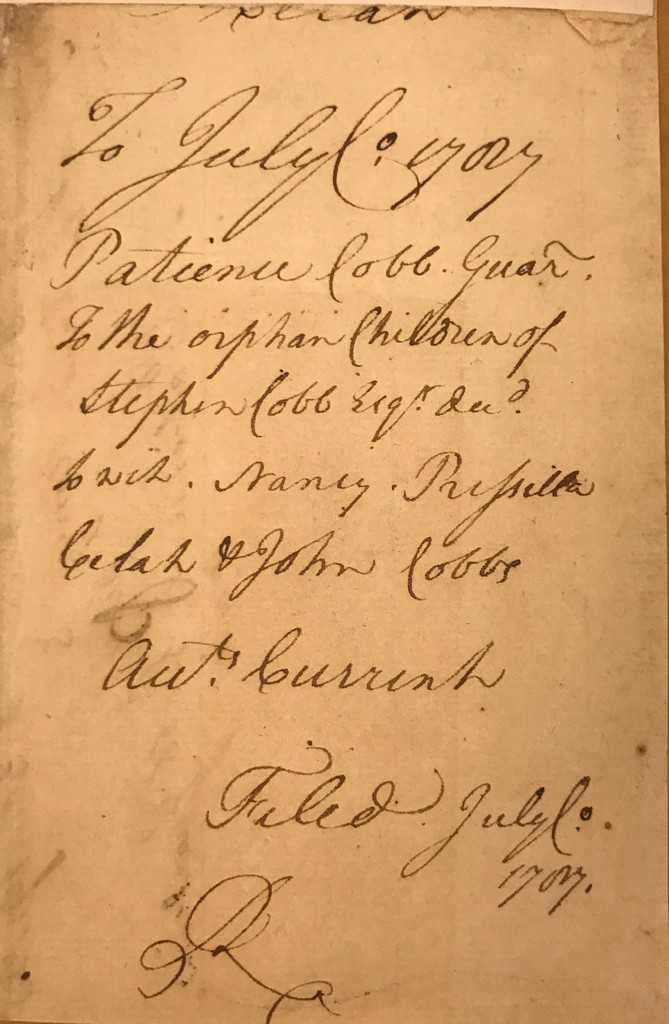 To July Co. 1787
Patience Cobb. Guar.
To the orphan Children of
Stephen Cobb Esqr. decd.
to wit. Nancy. Prissilla
Celah & John Cobbs
Accts. Currint
Filed July Co.
1787.